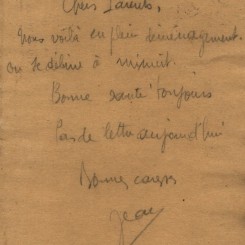 Chers Parents,
Nous voilà en plein déménagement.
on se débine à minuit.
Bonne santé toujours
Pas de lettre aujourd'hui
Bonnes caresses
Jean